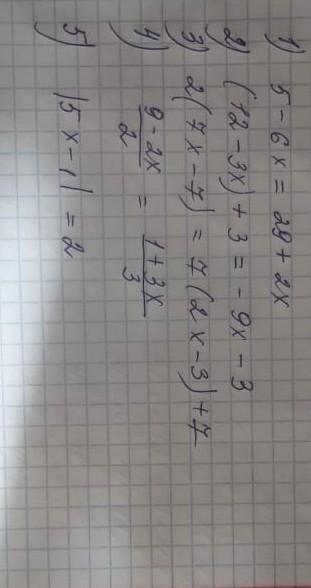 1) 5 - 6x = 29 + 2x
2) (12 - 3x) + 3 = - 9x - 3
3) 2(7x - 7) = 7(2x - 3) + 7
4) 9 - 2x / 2 = 1 + 3x / 3
5) |5x - 1| = 2